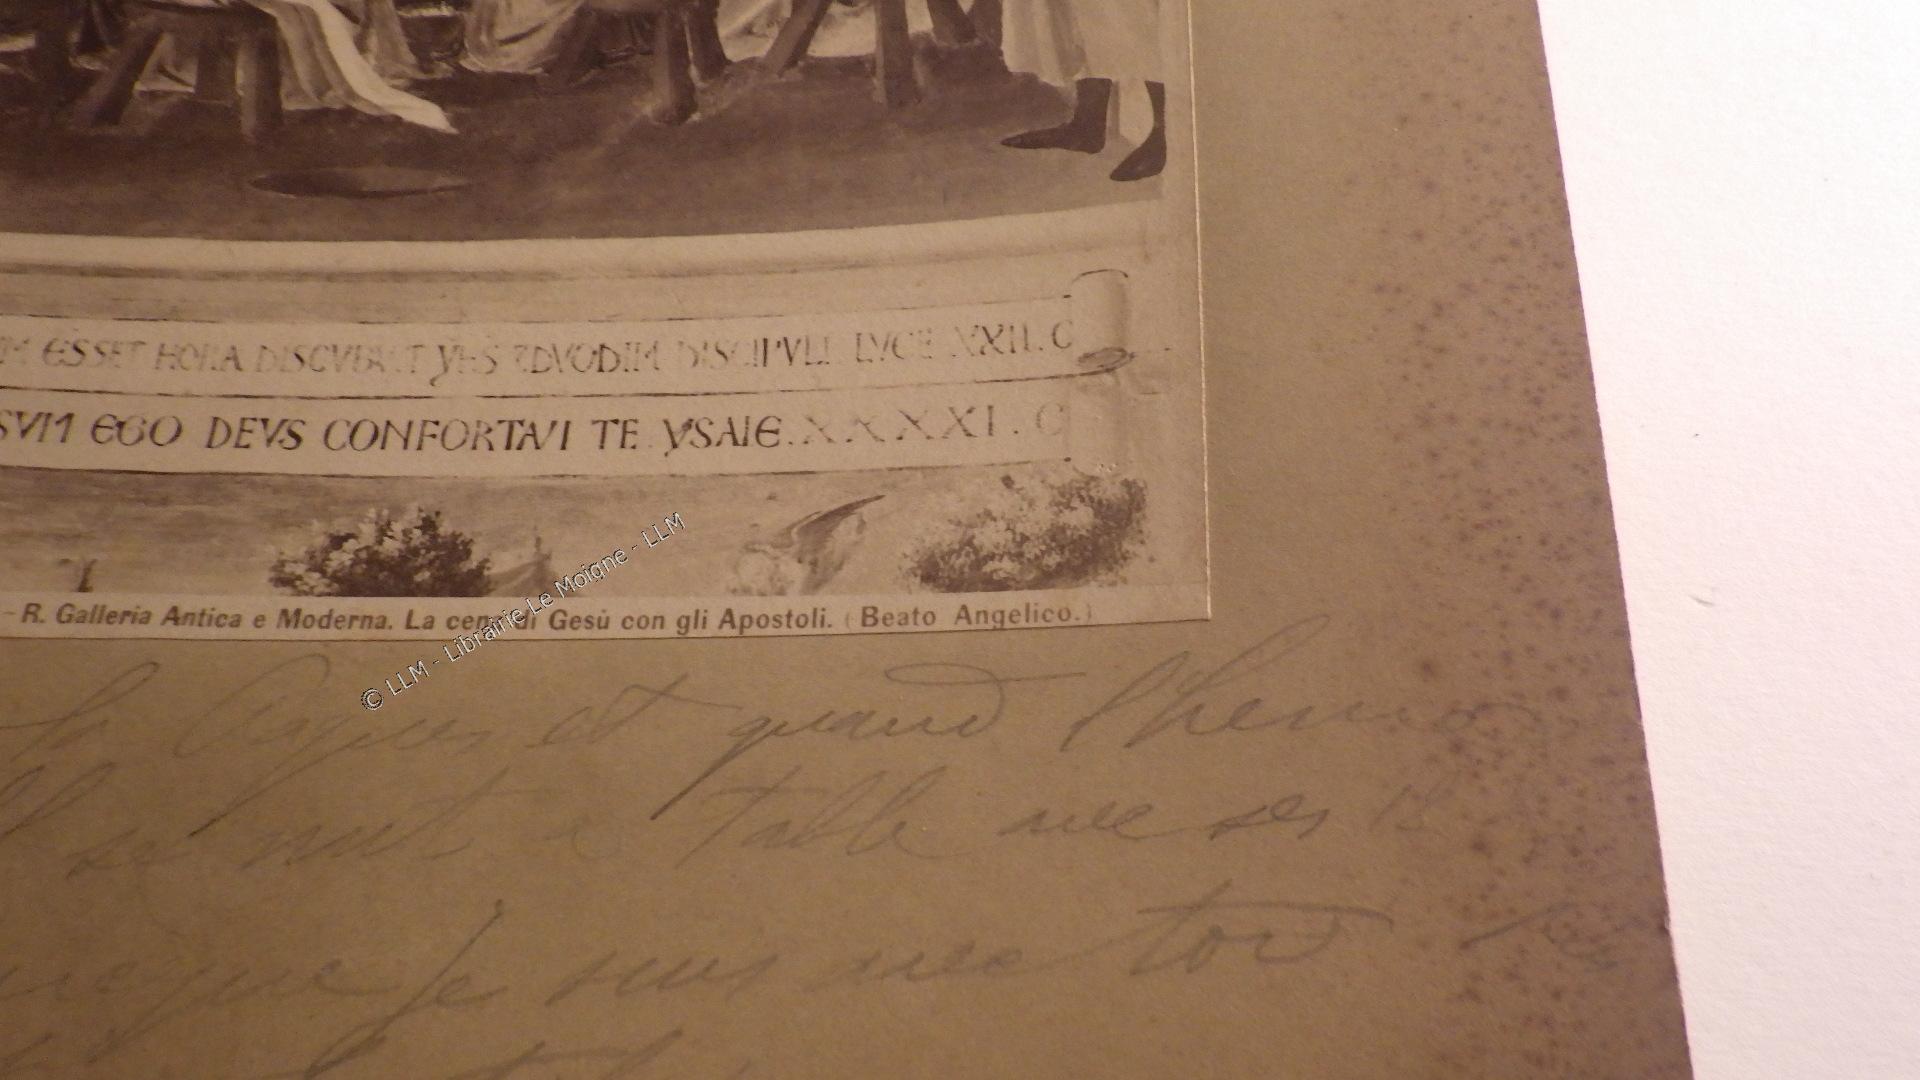 ESSET HORA DISCVBVIT YHS 7DVODIM DISCIPVLI LVCE XXII. C
SVM EGO DEVS CONFORTAVI TE. YSAIE. XXXXI. C
- R. Galleria Antica e Moderna. La cena di Gesù con gli Apostoli. (Beato Angelico.)
© LLM - Librairie Le Moigne - LLM
la Pâques et quand l'heure
se mit à table avec ses 12
je suis avec toi